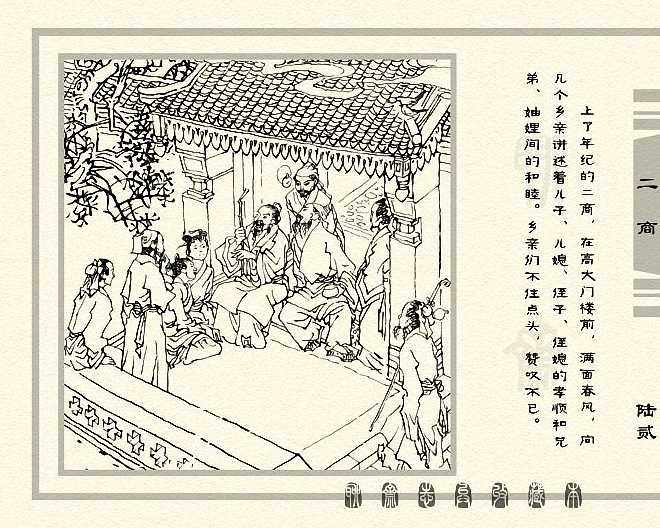 上了年纪的二商，在高大门楼前，满面春风，向
几个乡亲讲述着儿子、儿媳、侄子、侄媳的孝顺和兄
弟、妯娌间的和睦。乡亲们不住点头，赞叹不已。
二商
陆贰
聊斋志异收藏本